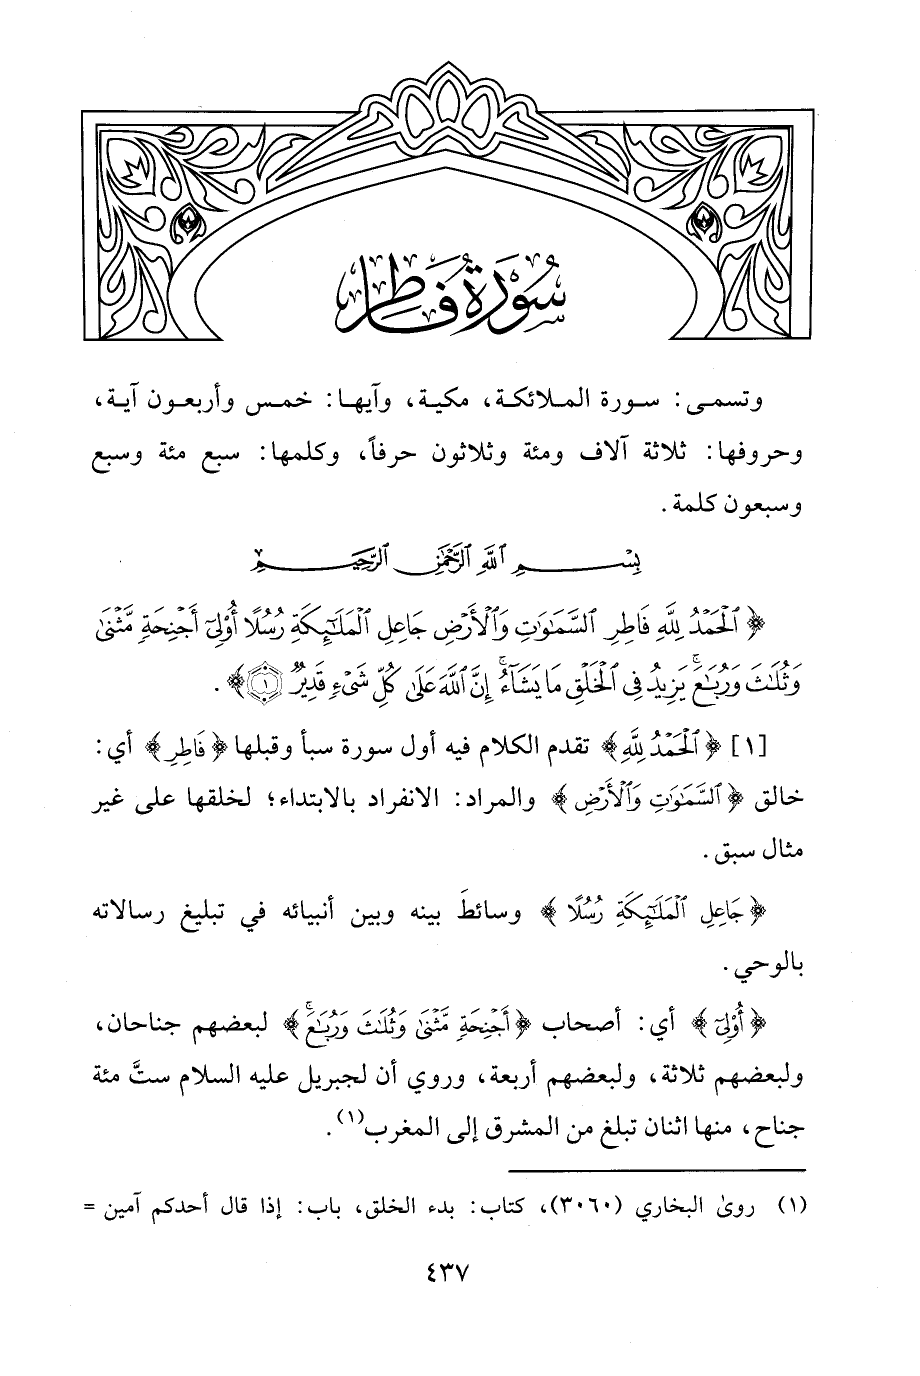 سُورَةُ فَاطِر
وتسمى: سورة الملائكة، مكية، وآيها: خمس وأربعون آية،
وحروفها: ثلاثة آلاف ومئة وثلاثون حرفاً، وكلمها: سبع مئة وسبع
وسبعون كلمة.
بِسْمِ ٱللَّهِ ٱلرَّحْمَٰنِ ٱلرَّحِيمِ
﴿ٱلْحَمْدُ لِلَّهِ فَاطِرِ ٱلسَّمَٰوَٰتِ وَٱلْأَرْضِ جَاعِلِ ٱلْمَلَٰٓئِكَةِ رُسُلًا أُو۟لِىٓ أَجْنِحَةٍ مَّثْنَىٰ
وَثُلَٰثَ وَرُبَٰعَ ۚ يَزِيدُ فِى ٱلْخَلْقِ مَا يَشَآءُ ۚ إِنَّ ٱللَّهَ عَلَىٰ كُلِّ شَىْءٍ قَدِيرٌ ١﴾.
[١] ﴿ٱلْحَمْدُ لِلَّهِ﴾ تقدم الكلام فيه أول سورة سبأ وقبلها ﴿فَاطِرِ﴾ أي:
خالق ﴿ٱلسَّمَٰوَٰتِ وَٱلْأَرْضِ﴾ والمراد: الانفراد بالابتداء؛ لخلقها على غير
مثال سبق.
﴿جَاعِلِ ٱلْمَلَٰٓئِكَةِ رُسُلًا﴾ وسائطَ بينه وبين أنبيائه في تبليغ رسالاته
بالوحي.
﴿أُو۟لِىٓ﴾ أي: أصحاب ﴿أَجْنِحَةٍ مَّثْنَىٰ وَثُلَٰثَ وَرُبَٰعَ ۚ﴾ لبعضهم جناحان،
ولبعضهم ثلاثة، ولبعضهم أربعة، وروي أن لجبريل عليه السلام ستَّ مئة
جناح، منها اثنان تبلغ من المشرق إلى المغرب(١).
(١) روىٰ البخاري (٣٠٦٠)، كتاب: بدء الخلق، باب: إذا قال أحدكم آمين =
٤٣٧